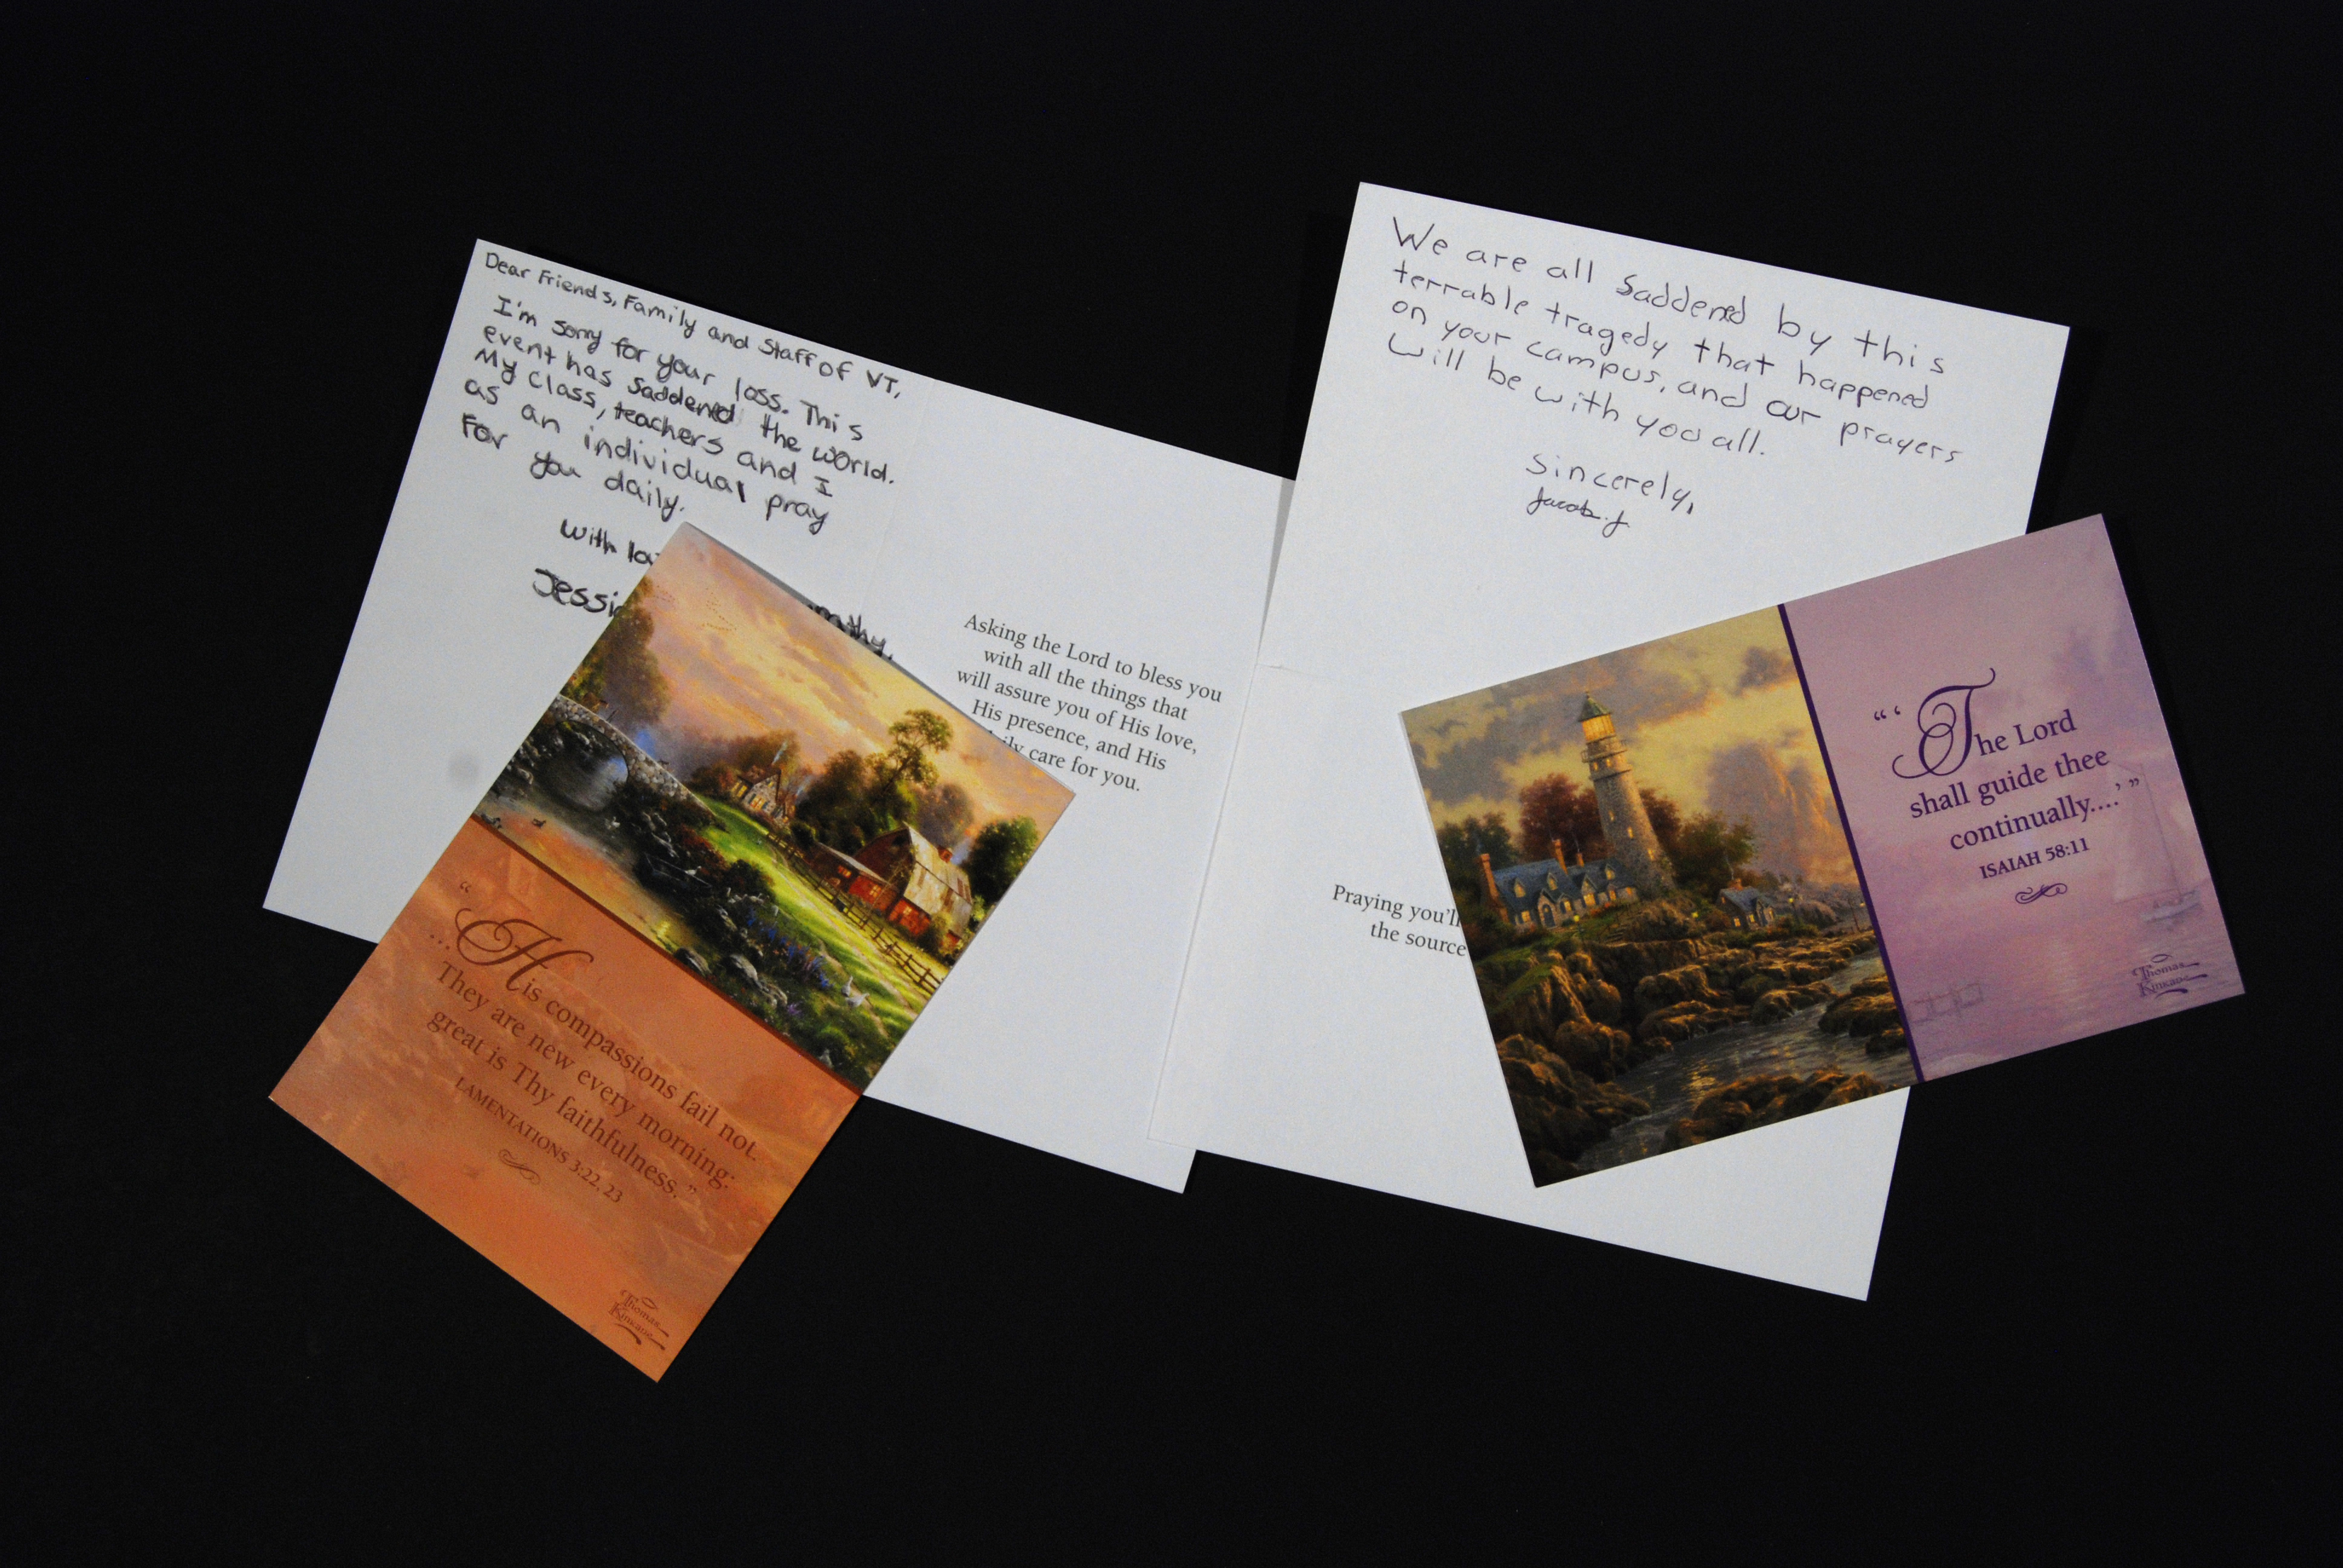 Dear Friends, Family and Staff of VT,
I'm sorry for your loss. This
event has saddened the world.
My class, teachers and I
as an individual pray
For you daily.
with
Asking the Lord to bless you
with all the things that
will assure you of His love,
His presence, and His
care for you.
"
...His compassions fail not.
They are new every morning:
great is Thy faithfulness."
LAMENTATIONS 3:22, 23
Thomas
Kinkade
We are all saddened by this
terrable tragedy that happened
on your campus, and our prayers
will be with you all.
Sincerely,
Jacob J
Praying you'll
the source
"'The Lord
shall guide thee
continually....'"
ISAIAH 58:11
Thomas
Kinkade